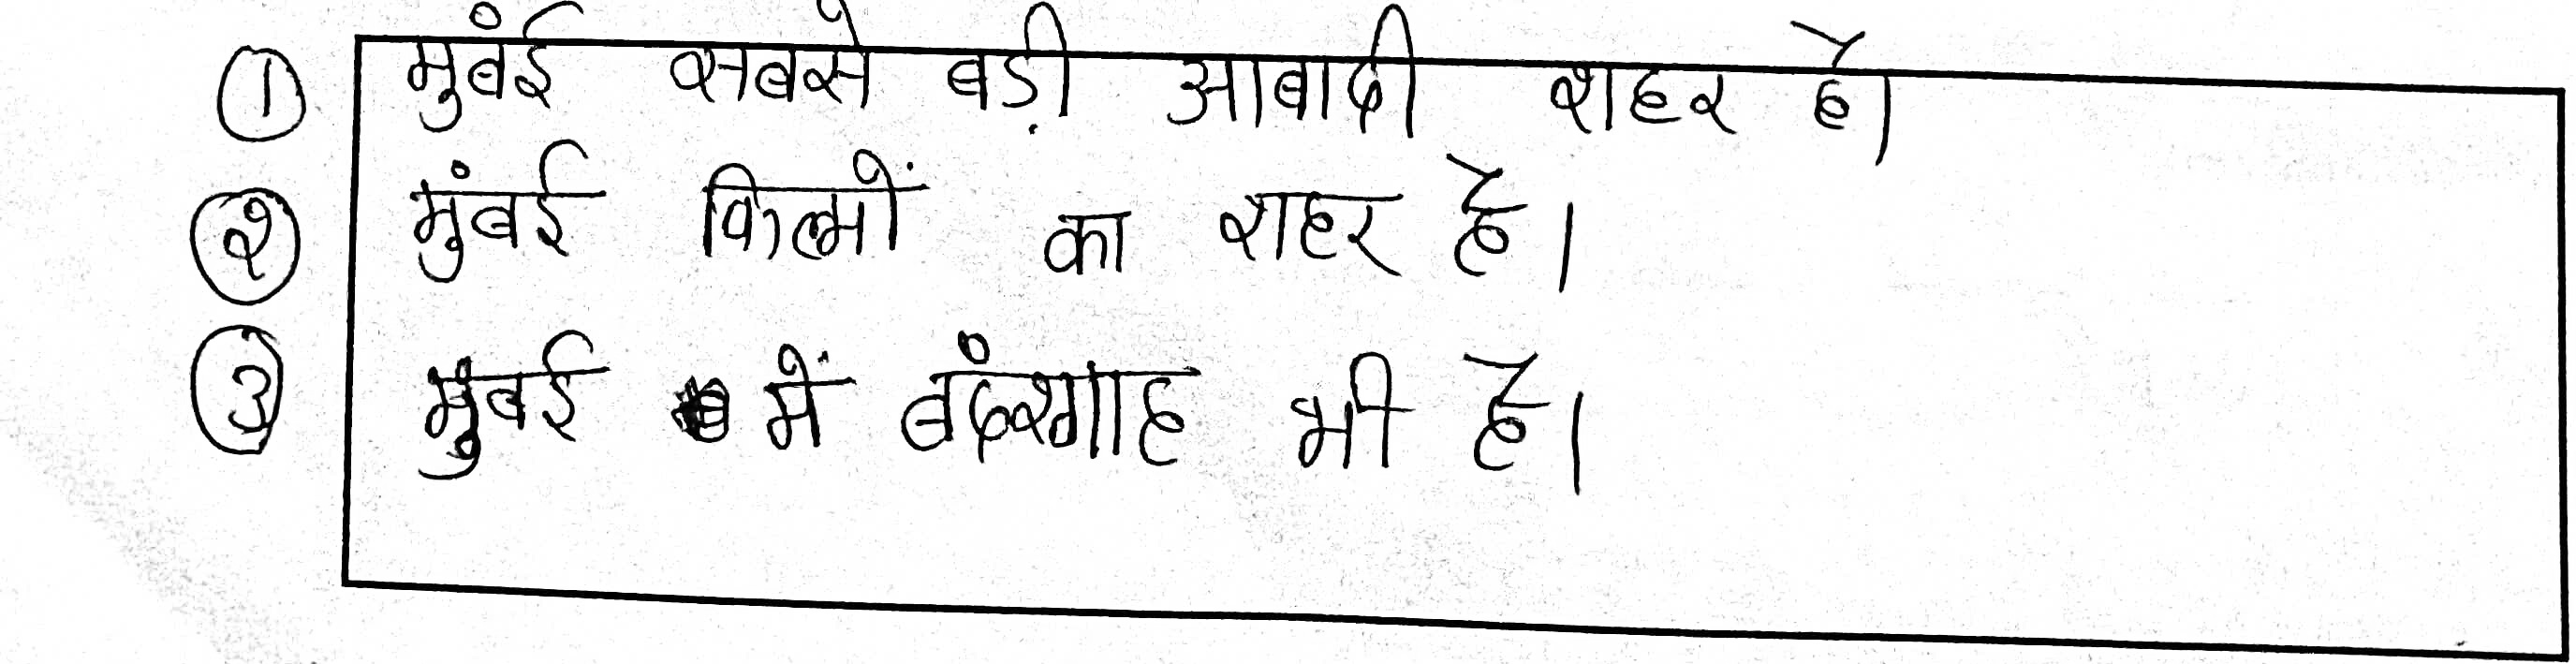 ① मुंबई सबसे बड़ी आबादी शहर है।
② मुंबई फिल्मों का शहर है।
③ मुंबई में बंदरगाह भी है।